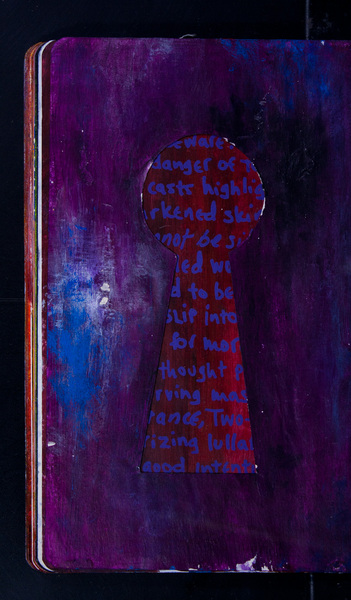 eware
danger of T
casts highlig
rkened skie
not be s
led we
d to be
slip into
for mor
thought p
rving mas
rance, Two
izing lulla
good intent